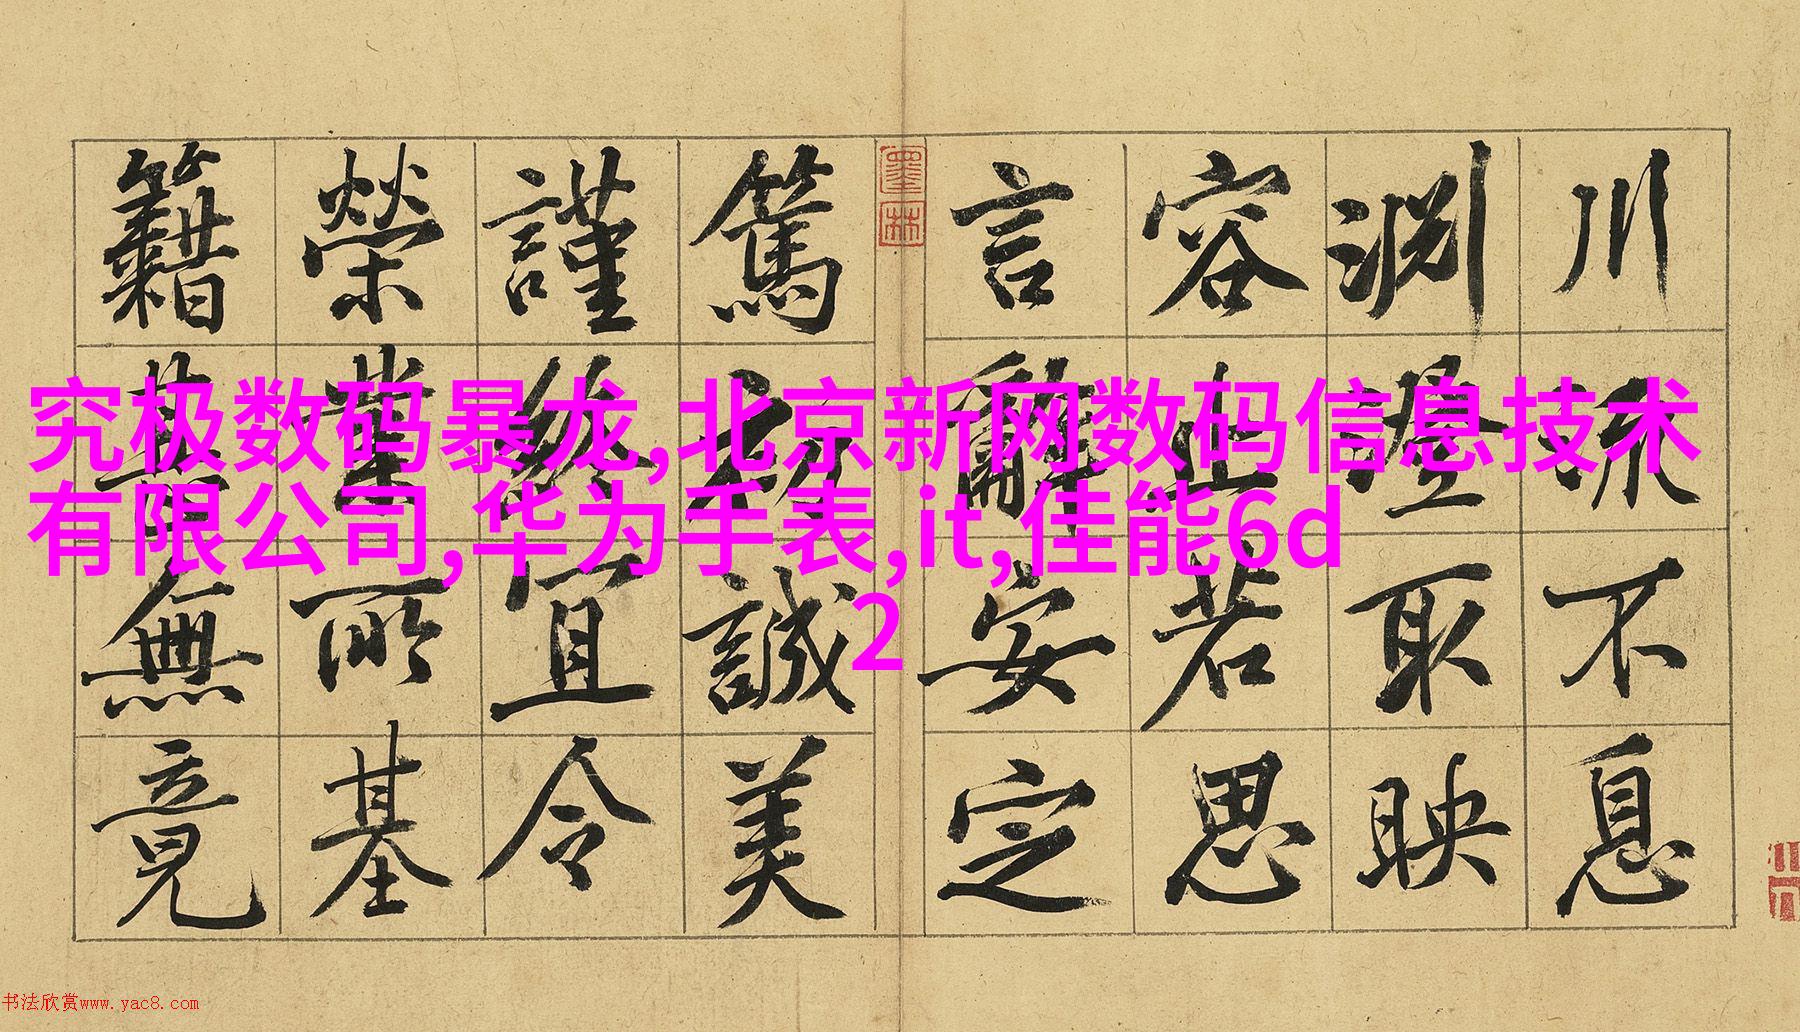 川流不息
淵澄取映
容止若思
言辭安定
墨林
篤初誠美
謹終宜令
榮業所基
籍甚無竟
究极数码暴龙,北京新网数码信息技术
有限公司,华为手表,it,佳能6d
2
书法欣赏www.yac8.com